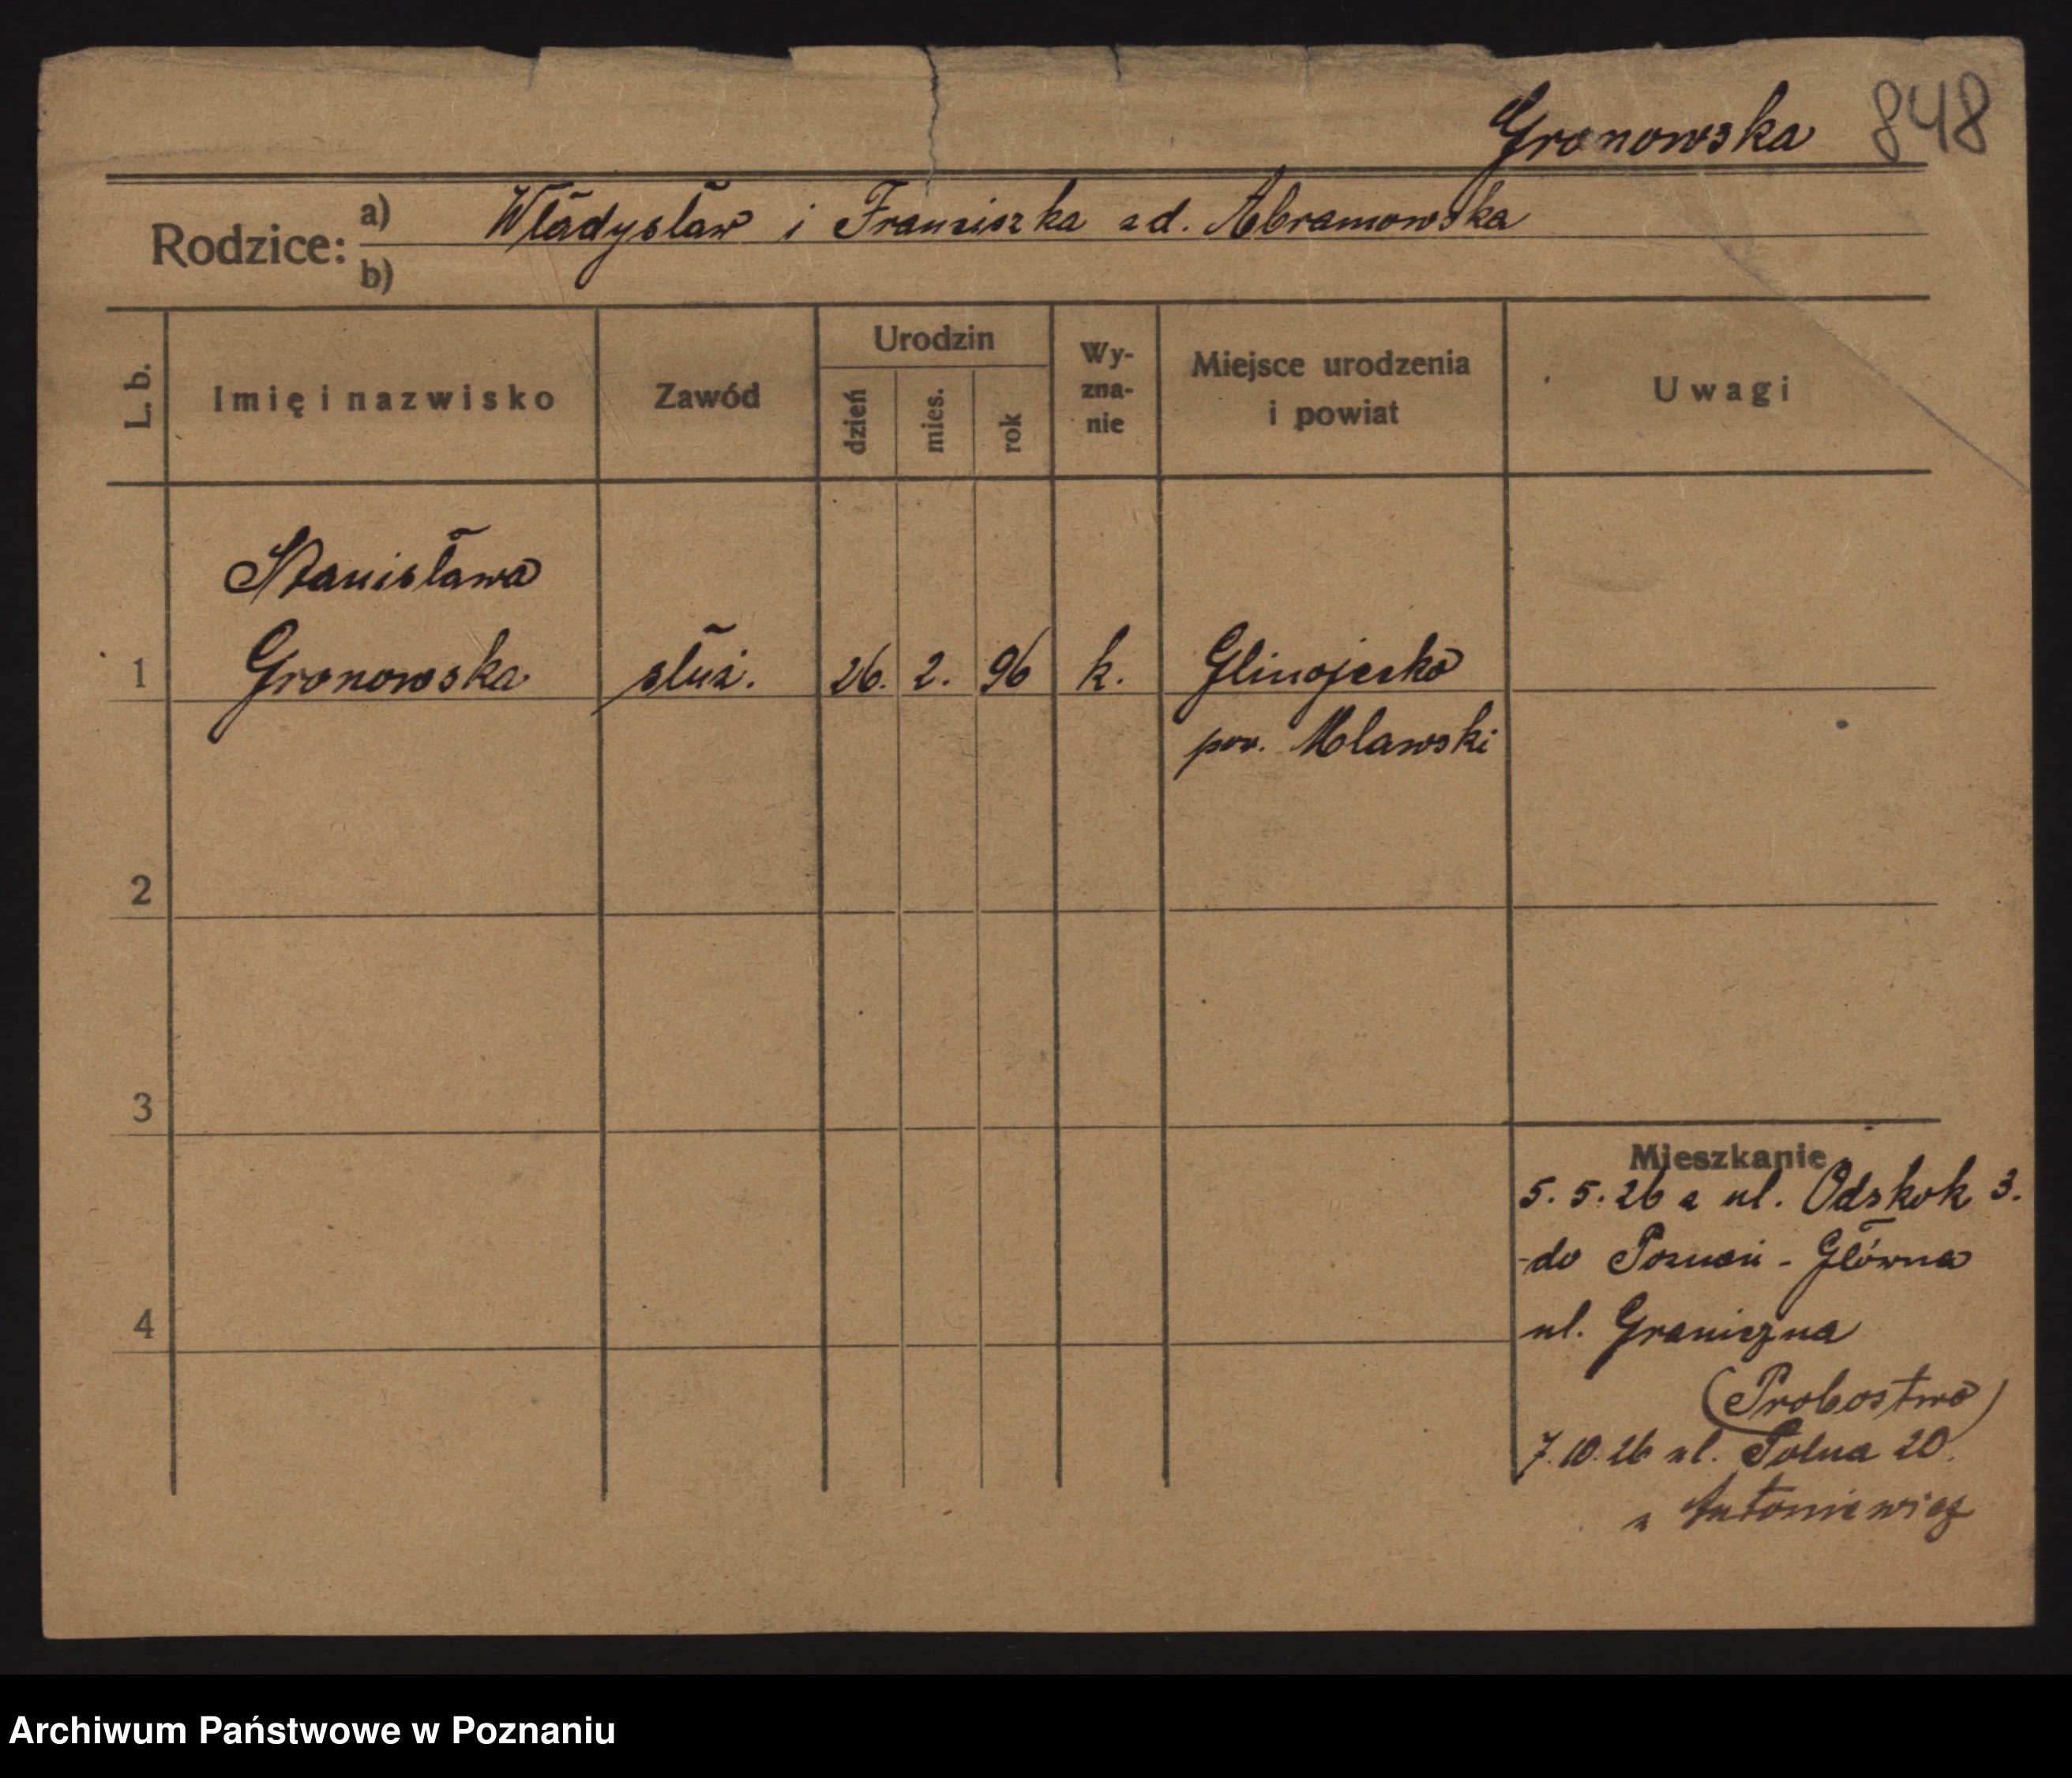 Gronowska 848
Rodzice: a) Władysław i Franciszka zd. Abramowska
b)
L. b. Imię i nazwisko Zawód Urodzin dzień mies. rok Wy-zna-nie Miejsce urodzenia i powiat Uwagi
Stanisława
1 Gronowska służ. 26. 2. 96 k. Glinojecko
pow. Mlawski
2
3
Mieszkanie
5. 5. 26 z ul. Odskok 3.
do Poznań - Główna
4 ul. Graniczna
(Probostwo)
7. 10. 26 ul. Polna 20.
u Antoniewicz
Archiwum Państwowe w Poznaniu